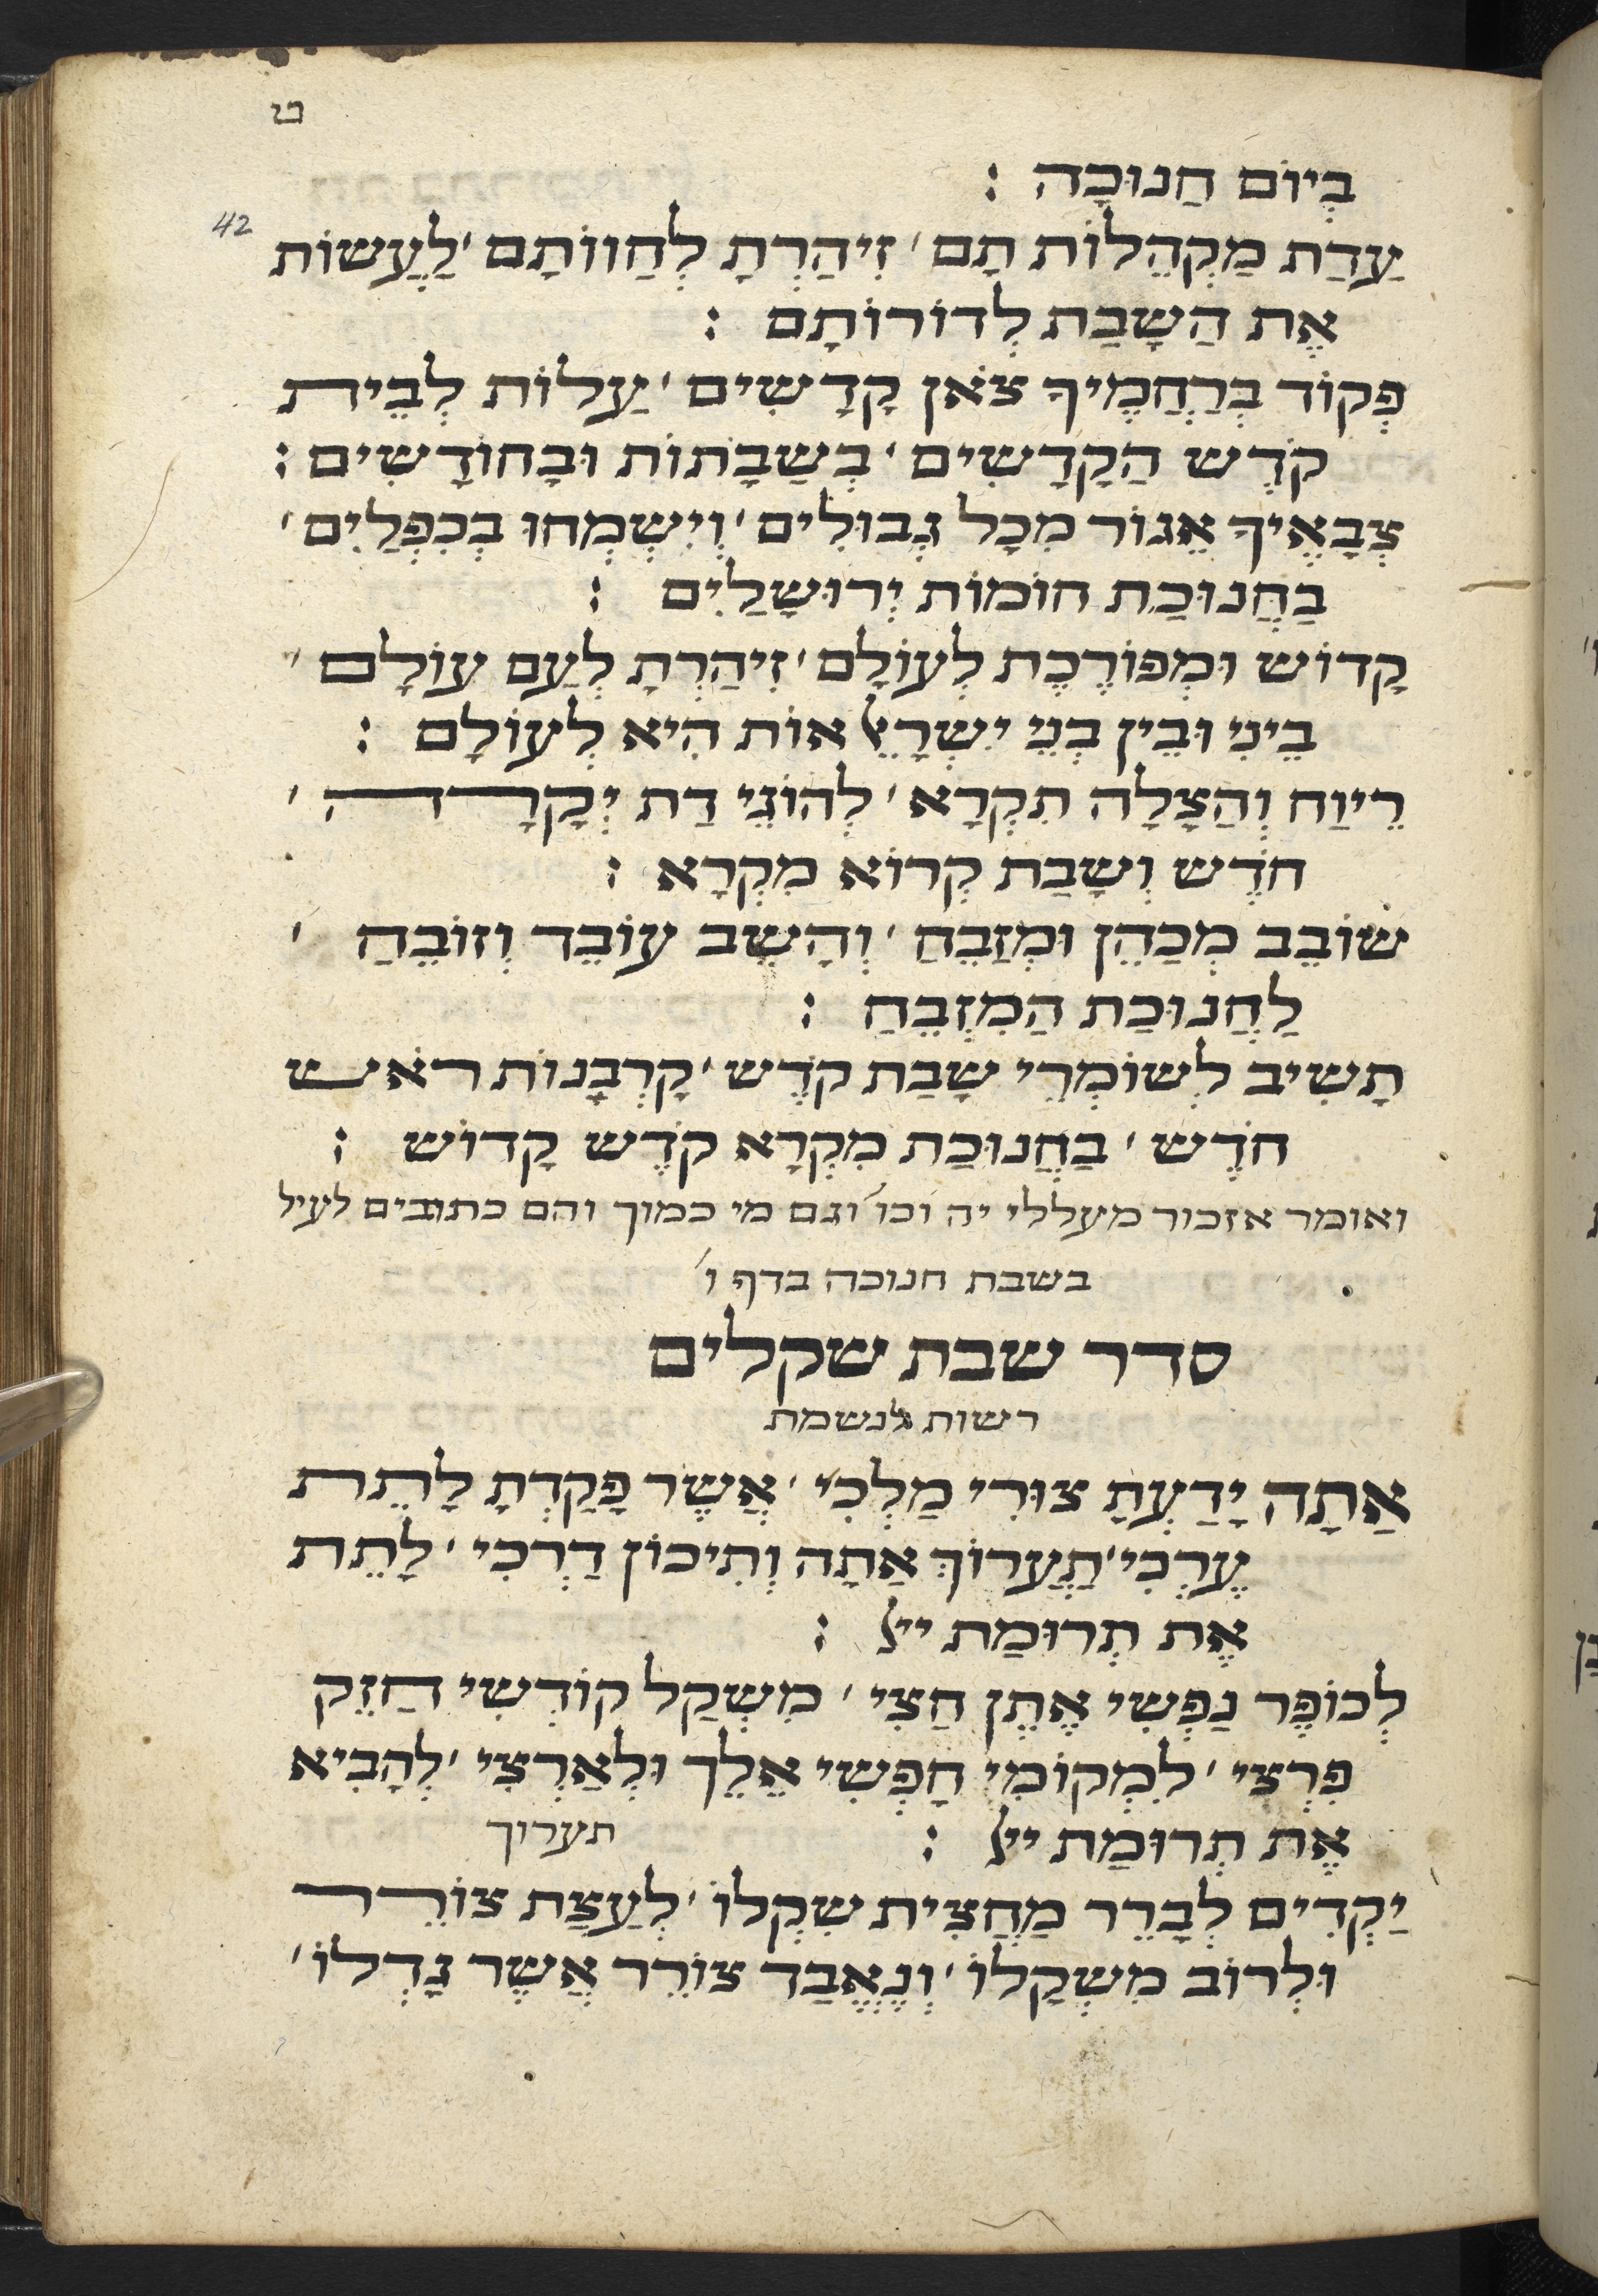 ט
בְיוֹם חַנוּכָה :
42
עַדַת מַקְהֵלוֹת תָם ׳ זִיהַרְתָ לְחַווֹתָם ׳ לַעֲשוֹת
אֶת הַשָבַת לְדוֹרוֹתָם :
פְקוֹד בְרַחֲמֶיךָ צֹאן קָדָשִים ׳ עַלוֹת לְבֵית
קֹדֶש הַקָדָשִים ׳ בְשַבָתוֹת וּבָחוֹדָשִים :
צְבָאֶיךָ אֵגוֹר מִכָל גְבוּלִים ׳ וְיִשְמְחוּ בְכִפְלַיִם ׳
בַחֲנוּכַת חוֹמוֹת יְרוּשָלַיִם :
קָדוֹש וּמְפוֹרֶכֶת לְעוֹלָם ׳ זִיהַרְתָ לְעַם עוֹלָם ׳
בֵינִי וּבֵין בְנֵי יִשְרָאֵל אוֹת הִיא לְעוֹלָם :
רֵיוַח וְהַצָלָה תִקְרָא ׳ לְהוֹגֵי דַת יְקָרָה ׳
חֹדֶש וְשָבַת קְרוֹא מִקְרָא :
שוֹבֵב מְכַהֵן וּמְזַבֵחַ ׳ וְהָשֵב עוֹבֵד וְזוֹבֵחַ ׳
לַחֲנוּכַת הַמִזְבֵחַ :
תָשִיב לְשוֹמְרֵי שָבַת קֹדֶש ׳ קָרְבָנוֹת רֹאש
חֹדֶש ׳ בַחֲנוּכַת מִקְרָא קֹדֶש קָדוֹש :
ואומר אזכור מעללי יה וכו׳ וגם מי כמוך והם כתובים לעיל
בשבת חנוכה בדף ו׳
סדר שבת שקלים
רשות לנשמת
אַתָה יָדַעְתָ צוּרִי מַלְכִי ׳ אֲשֶר פָקַדְתָ לָתֵת
עֶרְכִי ׳ תַעֲרוֹךְ אַתָה וְתִיכוֹן דַרְכִי ׳ לָתֵת
אֶת תְרוּמַת ייל :
לְכוֹפֶר נַפְשִי אֶתֵן חַצִי ׳ מִשְקַל קוֹדְשִי חַזֵק
פִרְצִי ׳ לִמְקוֹמִי חָפְשִי אֵלֵך וּלְאַרְצִי ׳ לְהָבִיא
אֶת תְרוּמַת ייל : תערוך
יַקְדִים לְבָרֵר מַחֲצִית שִקְלוֹ ׳ לְעַצַת צוֹרֵר
וּלְרוֹב מִשְקָלוֹ ׳ וְנֶאֱבַד צוֹרֵר אֲשֶר גָדְלוֹ ׳